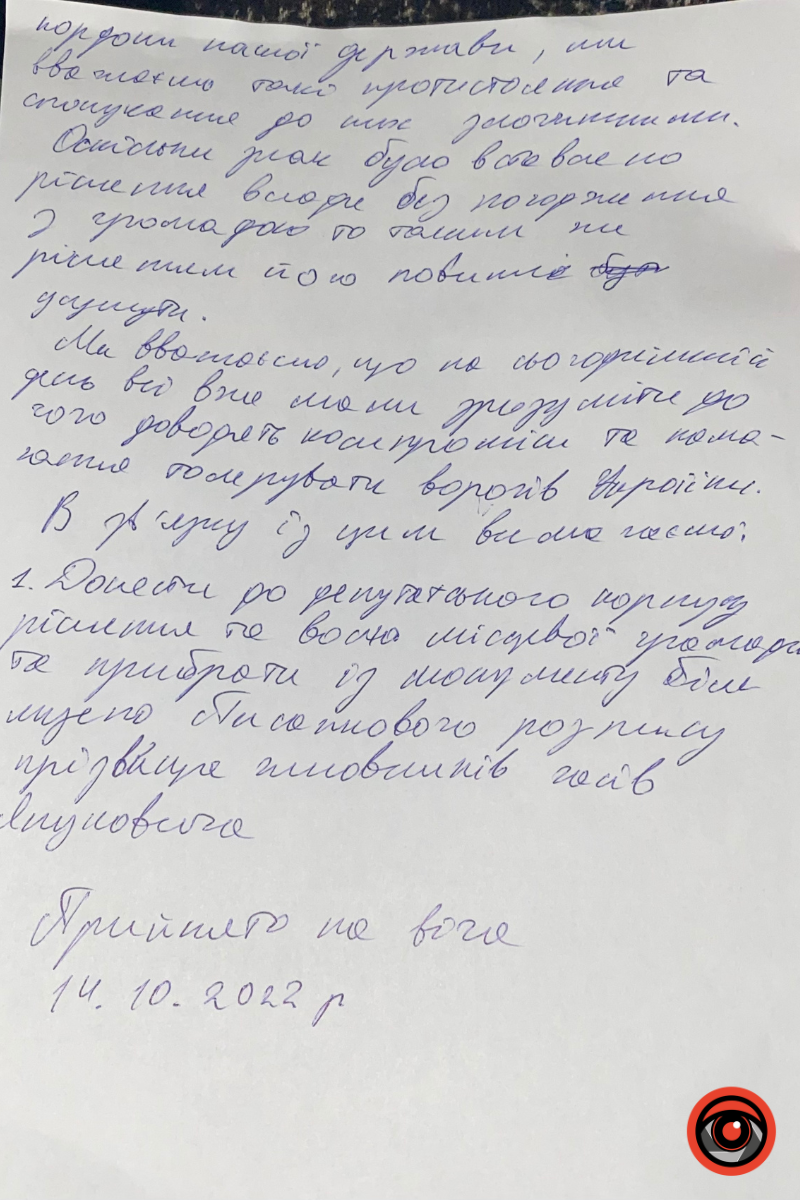 кордони нашої держави, ми
вважаємо такі протистояння та
спонукання до них злочинними.
Оскільки знак було вставлено
рішення влади без погодження
з громадою то таким же
рішенням його повинні
усунути.
Ми вважаємо, що на сьогоднішній
день всі вже мали зрозуміти до
чого доводять компроміси та нама-
гання толерувати ворогів України.
В зв'язку із цим вимагаємо:
1. Донести до депутатського корпусу
рішення та волю місцевої громади
та прибрати із монументу біля
музею Писанкового розпису
прізвище чиновників часів
Януковича
Прийнято на віча
14.10.2022 р